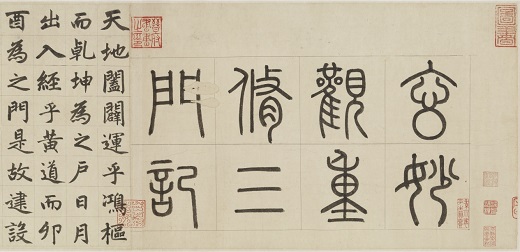 玄妙
觀重
脩三
門記
天地闔闢運乎鴻樞
而乾坤為之户日月
出入經乎黃道而卯
酉為之門是故建設